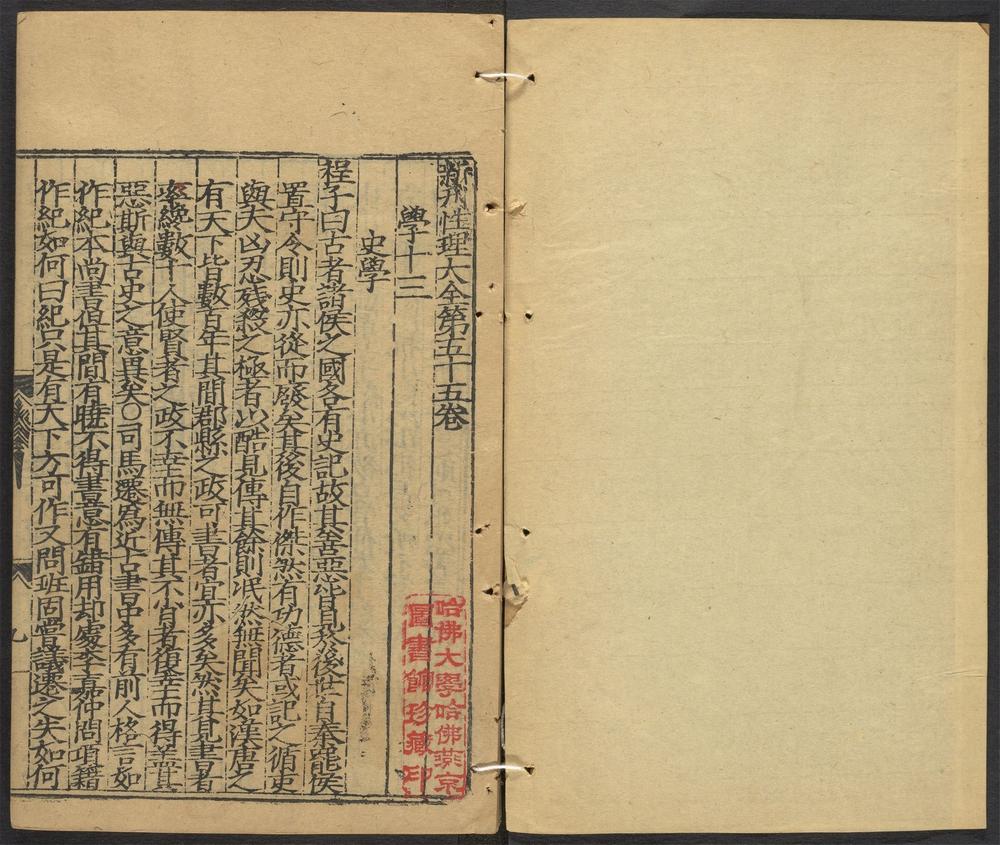 新刊性理大全第五十五卷
學十三
史學
程子曰古者諸侯之國各有史記故其善惡皆見於後世自秦罷侯
置守令則史亦從而廢矣其後自非傑然有功德者或記之循吏
與夫凶忍殘殺之極者以酷見傳其餘則泯然無聞矣如漢唐之
有天下皆數百年其間郡縣之政可書者宜亦多矣然其見書者
率纔數十人使賢者之政不幸而無傳其不肖者復幸而得蓋其
惡斯與古史之意異矣○司馬遷爲近古書中多有前人格言如
作紀本尚書但其間有曉不得書意有錯用却處李嘉仲問項籍
作紀如何曰紀只是有天下方可作又問班固嘗議遷之失如何
九
哈佛大學哈佛燕京
圖書館珍藏印